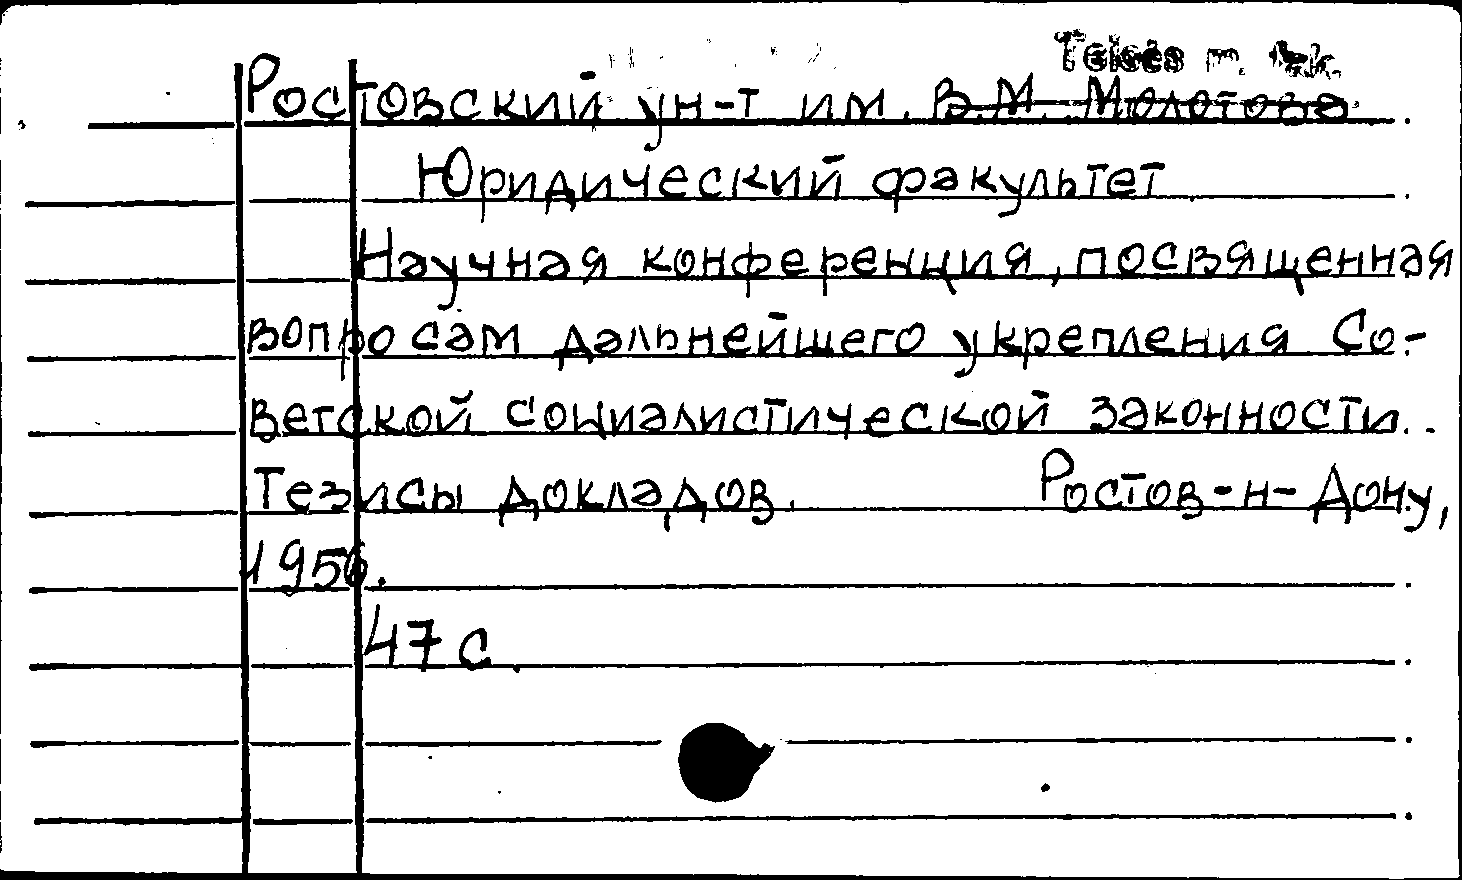 Teisės m. fak.
Ростовский ун-т им. В.М. Молотова
Юридический факультет
Научная конференция, посвященная
вопросам дальнейшего укрепления Со-
ветской социалистической законности.
Тезисы докладов. Ростов-н-Дону,
1956.
47 с.